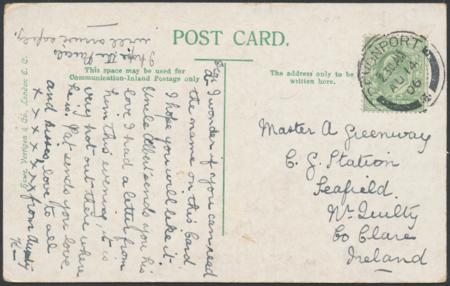 POST CARD.
This space may be used for
Communication-Inland Postage only
The address only to be
written here.
DEVONPORT
AU 14
06
Master A Greenway
C. G. Station
Seafield.
Nr. Quilty
Co Clare
Ireland
I wonder if you can read
the name on this Card
I hope you will like it.
Uncle sends you his
love. I had a letter from
him this evening, it is
very hot out there where
he is. Pat sends you love
and kisses, love to all
x x x x x x from Aunty
I hope the
will arrive safely
London E.C.